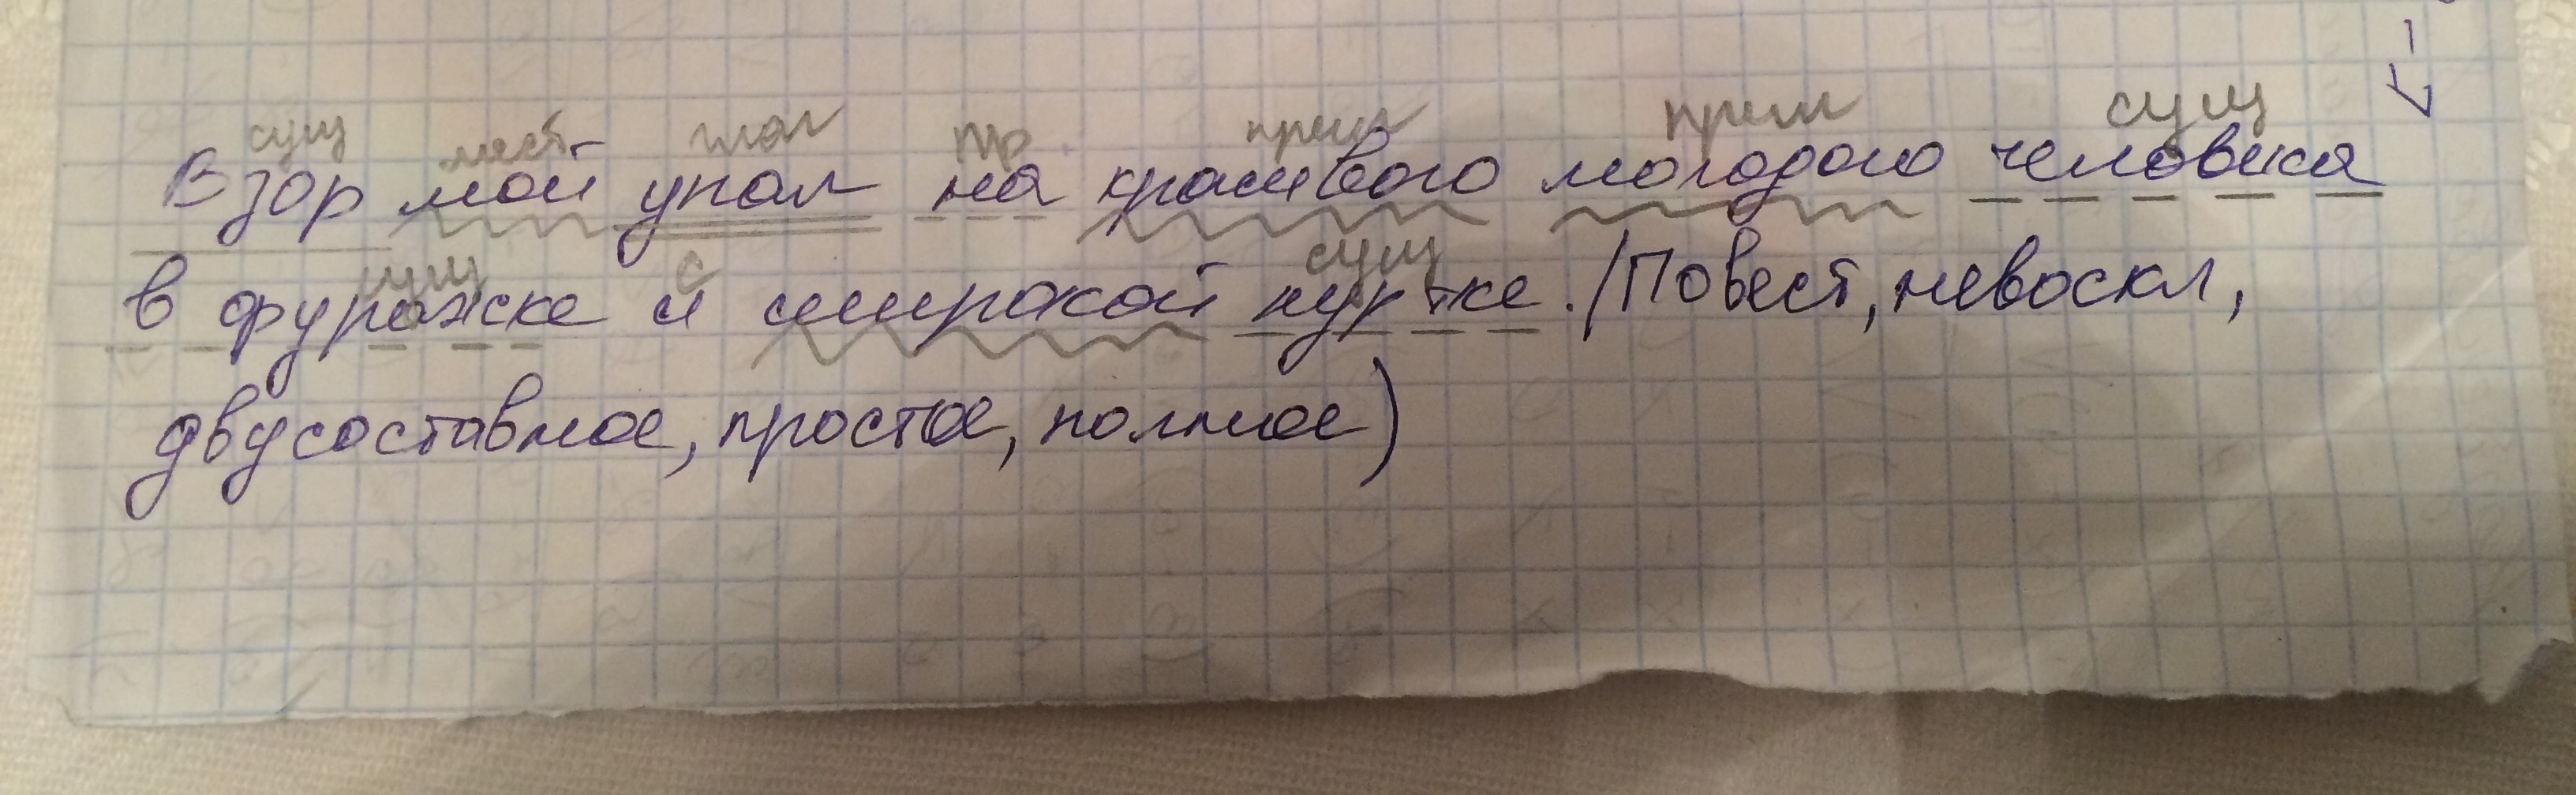 сущ мест глаг пр. прил прил сущ
Взор мой упал на красивого молодого человека
сущ с сущ
в фуражке и широкой куртке. (Повест, невоскл,
двусоставное, простое, полное)